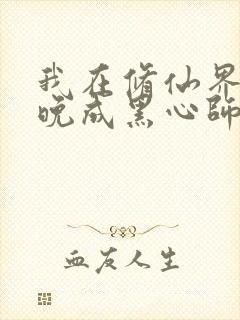 我在修仙界
晚成黑心師
血友人生